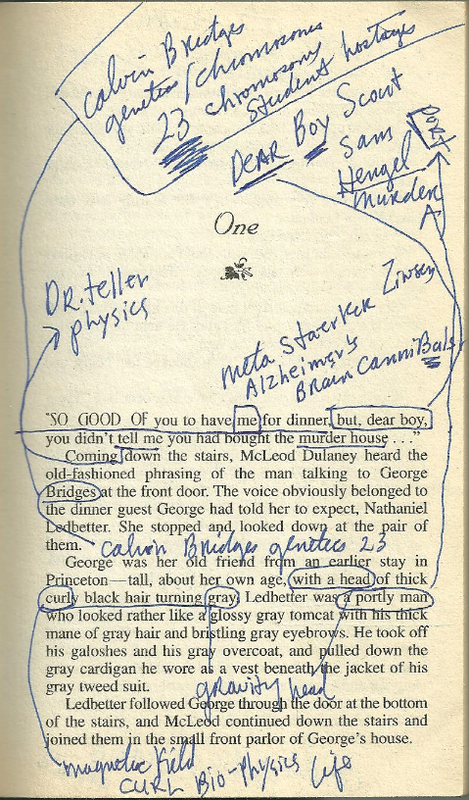 Calvin Bridges
genetics/chromosomes
23 chromosomy
Student hostages
DEAR Boy Scout
Sam
Hengel
Murder
PORT
A
One
DR. teller
physics
meta Staerker Zinser
Alzheimer's
BRAIN CanniBals
"SO GOOD OF you to have me for dinner, but, dear boy,
you didn't tell me you had bought the murder house . . ."
Coming down the stairs, McLeod Dulaney heard the
old-fashioned phrasing of the man talking to George
Bridges at the front door. The voice obviously belonged to
the dinner guest George had told her to expect, Nathaniel
Ledbetter. She stopped and looked down at the pair of
them.
Calvin Bridges genetics 23
George was her old friend from an earlier stay in
Princeton—tall, about her own age, with a head of thick
curly black hair turning gray. Ledbetter was a portly man
who looked rather like a glossy gray tomcat with his thick
mane of gray hair and bristling gray eyebrows. He took off
his galoshes and his gray overcoat, and pulled down the
gray cardigan he wore as a vest beneath the jacket of his
gray tweed suit.
gravity head
Ledbetter followed George through the door at the bottom
of the stairs, and McLeod continued down the stairs and
joined them in the small front parlor of George's house.
magnetic field
CURL Bio-Physics life